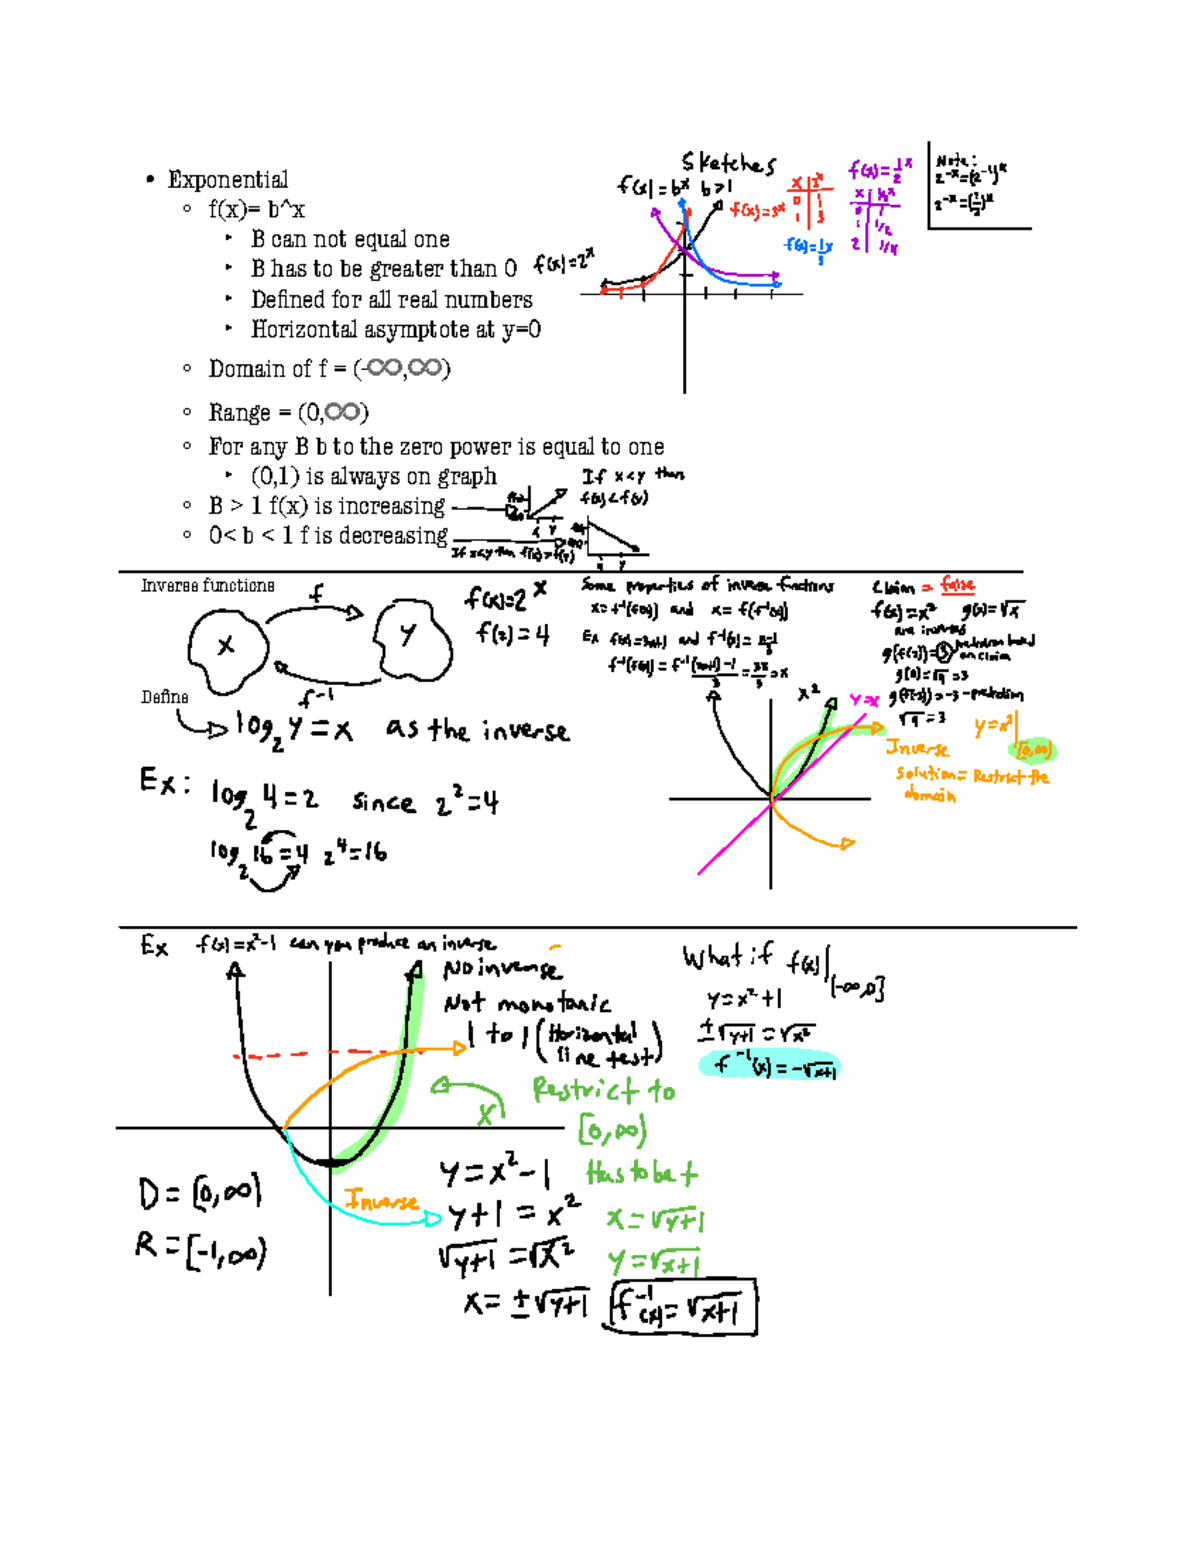 • Exponential
◦ f(x)= b^x
‣ B can not equal one
‣ B has to be greater than 0
‣ Defined for all real numbers
‣ Horizontal asymptote at y=0
◦ Domain of f = (-∞,∞)
◦ Range = (0,∞)
◦ For any B b to the zero power is equal to one
‣ (0,1) is always on graph
◦ B > 1 f(x) is increasing
◦ 0< b < 1 f is decreasing
If x<y then f(x)>f(y)
Sketches
f(x)=b^x b>1
f(x)=2^x
f(x)=3^x
x 3^x
0 1
1 3
f(x)=1/3^x
f(x)=1/2^x
x 1/2^x
0 1
1 1/2
2 1/4
Note:
2^-x=(2^-1)^x
2^-x=(1/2)^x
If x<y then
f(x)<f(y)
x y
x y
Inverse functions
f
x y
f^-1
f(x)=2^x
f(2)=4
Define
log₂ y = x as the inverse
Ex: log₂ 4=2 since 2²=4
log₂ 16=4 2⁴=16
Some properties of inverse functions
x=f^-1(f(x)) and x=f(f^-1(x))
Ex f(x)=3x+1 and f^-1(x)=x-1/3
f^-1(f(x))=f^-1 (3x+1)-1/3=3x/3=x
Claim = false
f(x)=x² g(x)=√x
are inverses
on claim
g(9)=√9=3
g(f(-3))=-3
√9=3
x²
y=x
Inverse
y=x²|[0,∞)
solution= Restrict the
domain
Ex f(x)=x²-1 can you produce an inverse
No inverse
Not monotonic
1 to 1 (Horizontal
line test)
Restrict to
[0,∞)
x
Inverse
D=[0,∞)
R=[-1,∞)
y=x²-1 Has to be +
y+1=x² x=√y+1
√y+1=√x² y=√x+1
x=±√y+1 f^-1(x)=√x+1
What if f(x)|[-∞,0]
y=x²+1
±√y+1=√x²
f^-1(x)=-√x+1